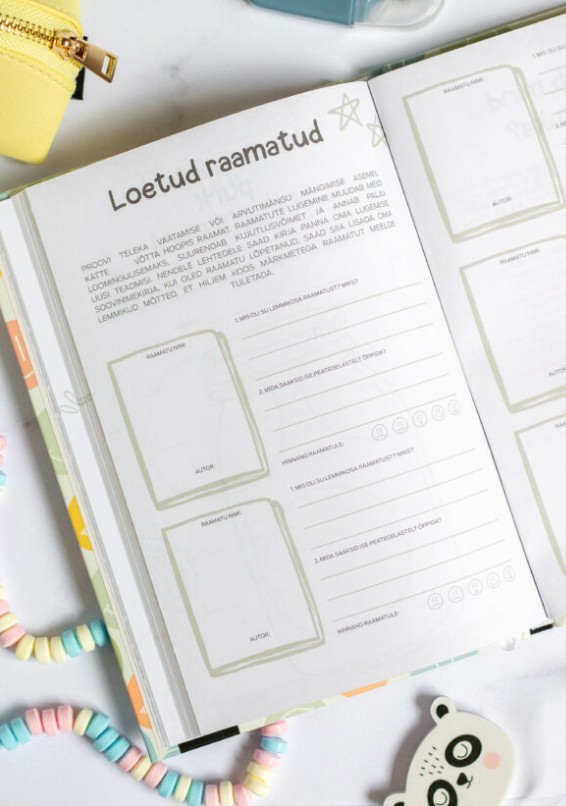 Loetud raamatud
PROOVI TELEKA VAATAMISE VÕI ARVUTIMÄNGU MÄNGIMISE ASEMEL
KÄTTE VÕTTA HOOPIS RAAMAT. RAAMATUTE LUGEMINE MUUDAB MEID
LOOMINGULISEMAKS, SUURENDAB KUJUTLUSVÕIMET JA ANNAB PALJU
UUSI TEADMISI. NENDELE LEHTEDELE SAAD KIRJA PANNA OMA LUGEMISE
SOOVINIMEKIRJA. KUI OLED RAAMATU LÕPETANUD, SAAD SIIA LISADA OMA
LEMMIKUD MÕTTED, ET HILJEM KOOS MÄRKMETEGA RAAMATUT MEELDE
TULETADA.
RAAMATU NIMI:
AUTOR:
1. MIS OLI SU LEMMIKOSA RAAMATUST? MIKS?
2. MIDA SAAKSID ISE PEATEGELASTELT ÕPPIDA?
HINNANG RAAMATULE:
RAAMATU NIMI:
AUTOR:
1. MIS OLI SU LEMMIKOSA RAAMATUST? MIKS?
2. MIDA SAAKSID ISE PEATEGELASTELT ÕPPIDA?
HINNANG RAAMATULE:
RAAMATU NIMI:
AUTOR:
1. MIS OLI SU
RAAMATU NIMI: